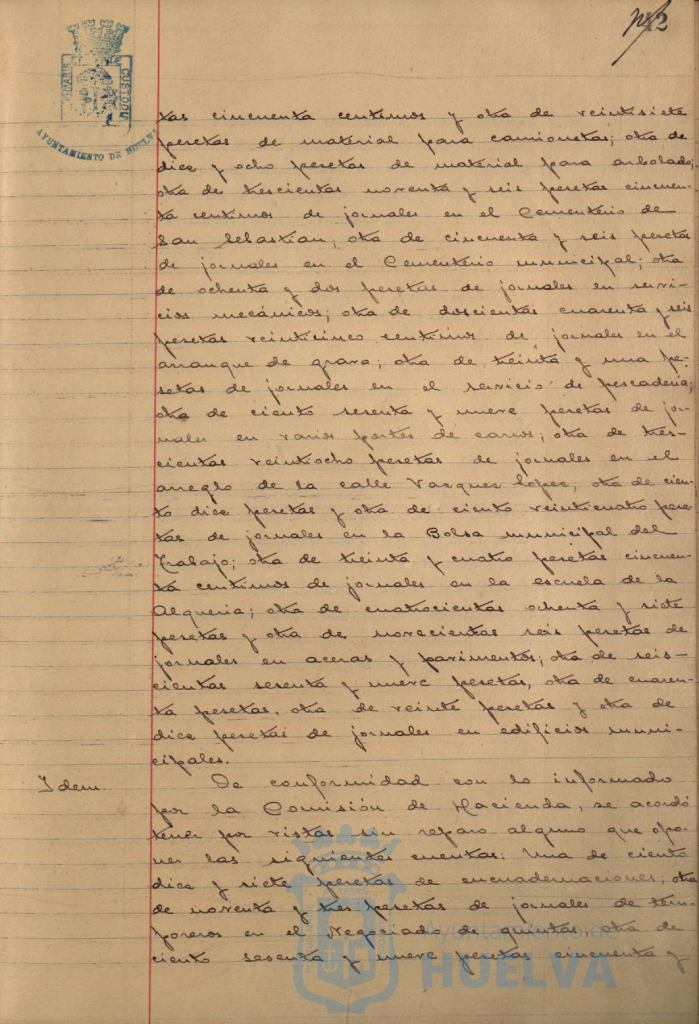 42
PORTUS MARIS CUSTODIA
AYUNTAMIENTO DE HUELVA
tas cincuenta centimos y otra de veintisiete
pesetas de material para camionetas; otra de
diez y ocho pesetas de material para arbolado;
otra de trescientas noventa y seis pesetas cincuen-
ta centimos de jornales en el Cementerio de
San Sebastian, otra de cincuenta y seis pesetas
de jornales en el Cementerio municipal; otra
de ochenta y dos pesetas de jornales en servi-
cios mecánicos; otra de doscientas cuarenta y seis
pesetas veinticinco centimos de jornales en el
arranque de grava; otra de treinta y una pe-
setas de jornales en el servicio de pescaderia;
otra de ciento sesenta y nueve pesetas de jor-
nales en varios portes de carros; otra de tres-
cientas veintiocho pesetas de jornales en el
arreglo de la calle Vazquez Lopez, otra de cien-
to diez pesetas y otra de ciento veinticuatro pese-
tas de jornales en la Bolsa municipal del
Trabajo; otra de treinta y cuatro pesetas cincuen-
ta centimos de jornales en la escuela de la
Alqueria; otra de cuatrocientas ochenta y siete
pesetas y otra de novecientas seis pesetas de
jornales en aceras y pavimentos; otra de seis-
cientas sesenta y nueve pesetas, otra de cuaren-
ta pesetas, otra de veinte pesetas y otra de
diez pesetas de jornales en edificios muni-
cipales.
Idem. De conformidad con lo informado
por la Comisión de Hacienda, se acordó
tener por vistas sin reparo alguno que opo-
ner las siguientes cuentas: Una de ciento
diez y siete pesetas de encuadernaciones; otra
de noventa y tres pesetas de jornales de tem-
poreros en el Negociado de quintas; otra de
ciento sesenta y nueve pesetas cincuenta y
Ayuntamiento de
HUELVA